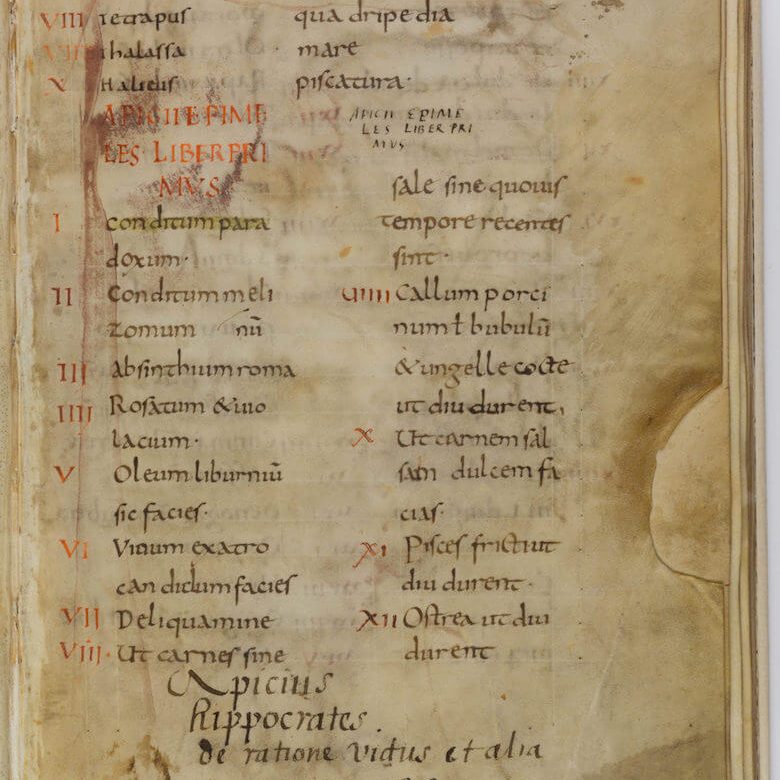 VIII Tetrapus quadripedia
VIIII Thalassa mare
X Halieus piscatura·
APICII EPIME
LES LIBER PRI
MUS
I conditum para
doxum·
II Conditum meli
zomum nū
III absinthium roma
IIII Rosatum & uio
lacium·
V Oleum liburniū
sic facies·
VI Vinum ex atro
candidum facies
VII De liquamine
VIII· Ut carnes sine
APICII EPIME
LES LIBER PRI
MUS
sale sine quouis
tempore recentes
sint·
VIIII Callum porci
num ł bubulū
& ungelle cocte
ut diu durent,
X Ut carnem sal
sam dulcem fa
cias·
XI Pisces fricti ut
diu durent·
XII Ostrea ut diu
durent
Apicius
Hippocrates.
de ratione victus et alia